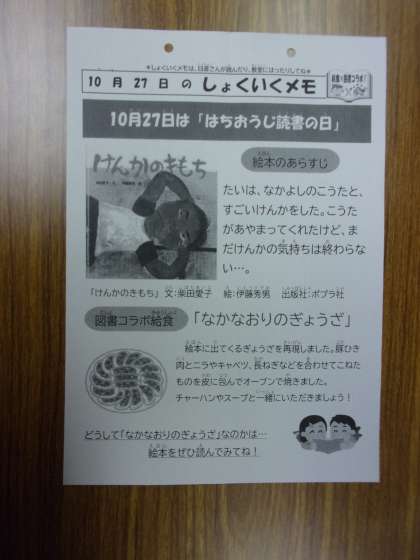 ＊しょくいくメモは、日直さんが読んだり、教室にはったりしてね＊
10月27日のしょくいくメモ
給食と図書コラボ！
10月27日は「はちおうじ読書の日」
けんかのきもち
絵本のあらすじ
たいは、なかよしのこうたと、
すごいけんかをした。こうた
があやまってくれたけど、ま
だけんかの気持ちは終わらな
い…。
「けんかのきもち」 文：柴田愛子 絵：伊藤秀男 出版社：ポプラ社
図書コラボ給食 「なかなおりのぎょうざ」
絵本に出てくるぎょうざを再現しました。豚ひき
肉とニラやキャベツ、長ねぎなどを合わせてこねた
ものを皮に包んでオーブンで焼きました。
チャーハンやスープと一緒にいただきましょう！
どうして「なかなおりのぎょうざ」なのかは…
絵本をぜひ読んでみてね！